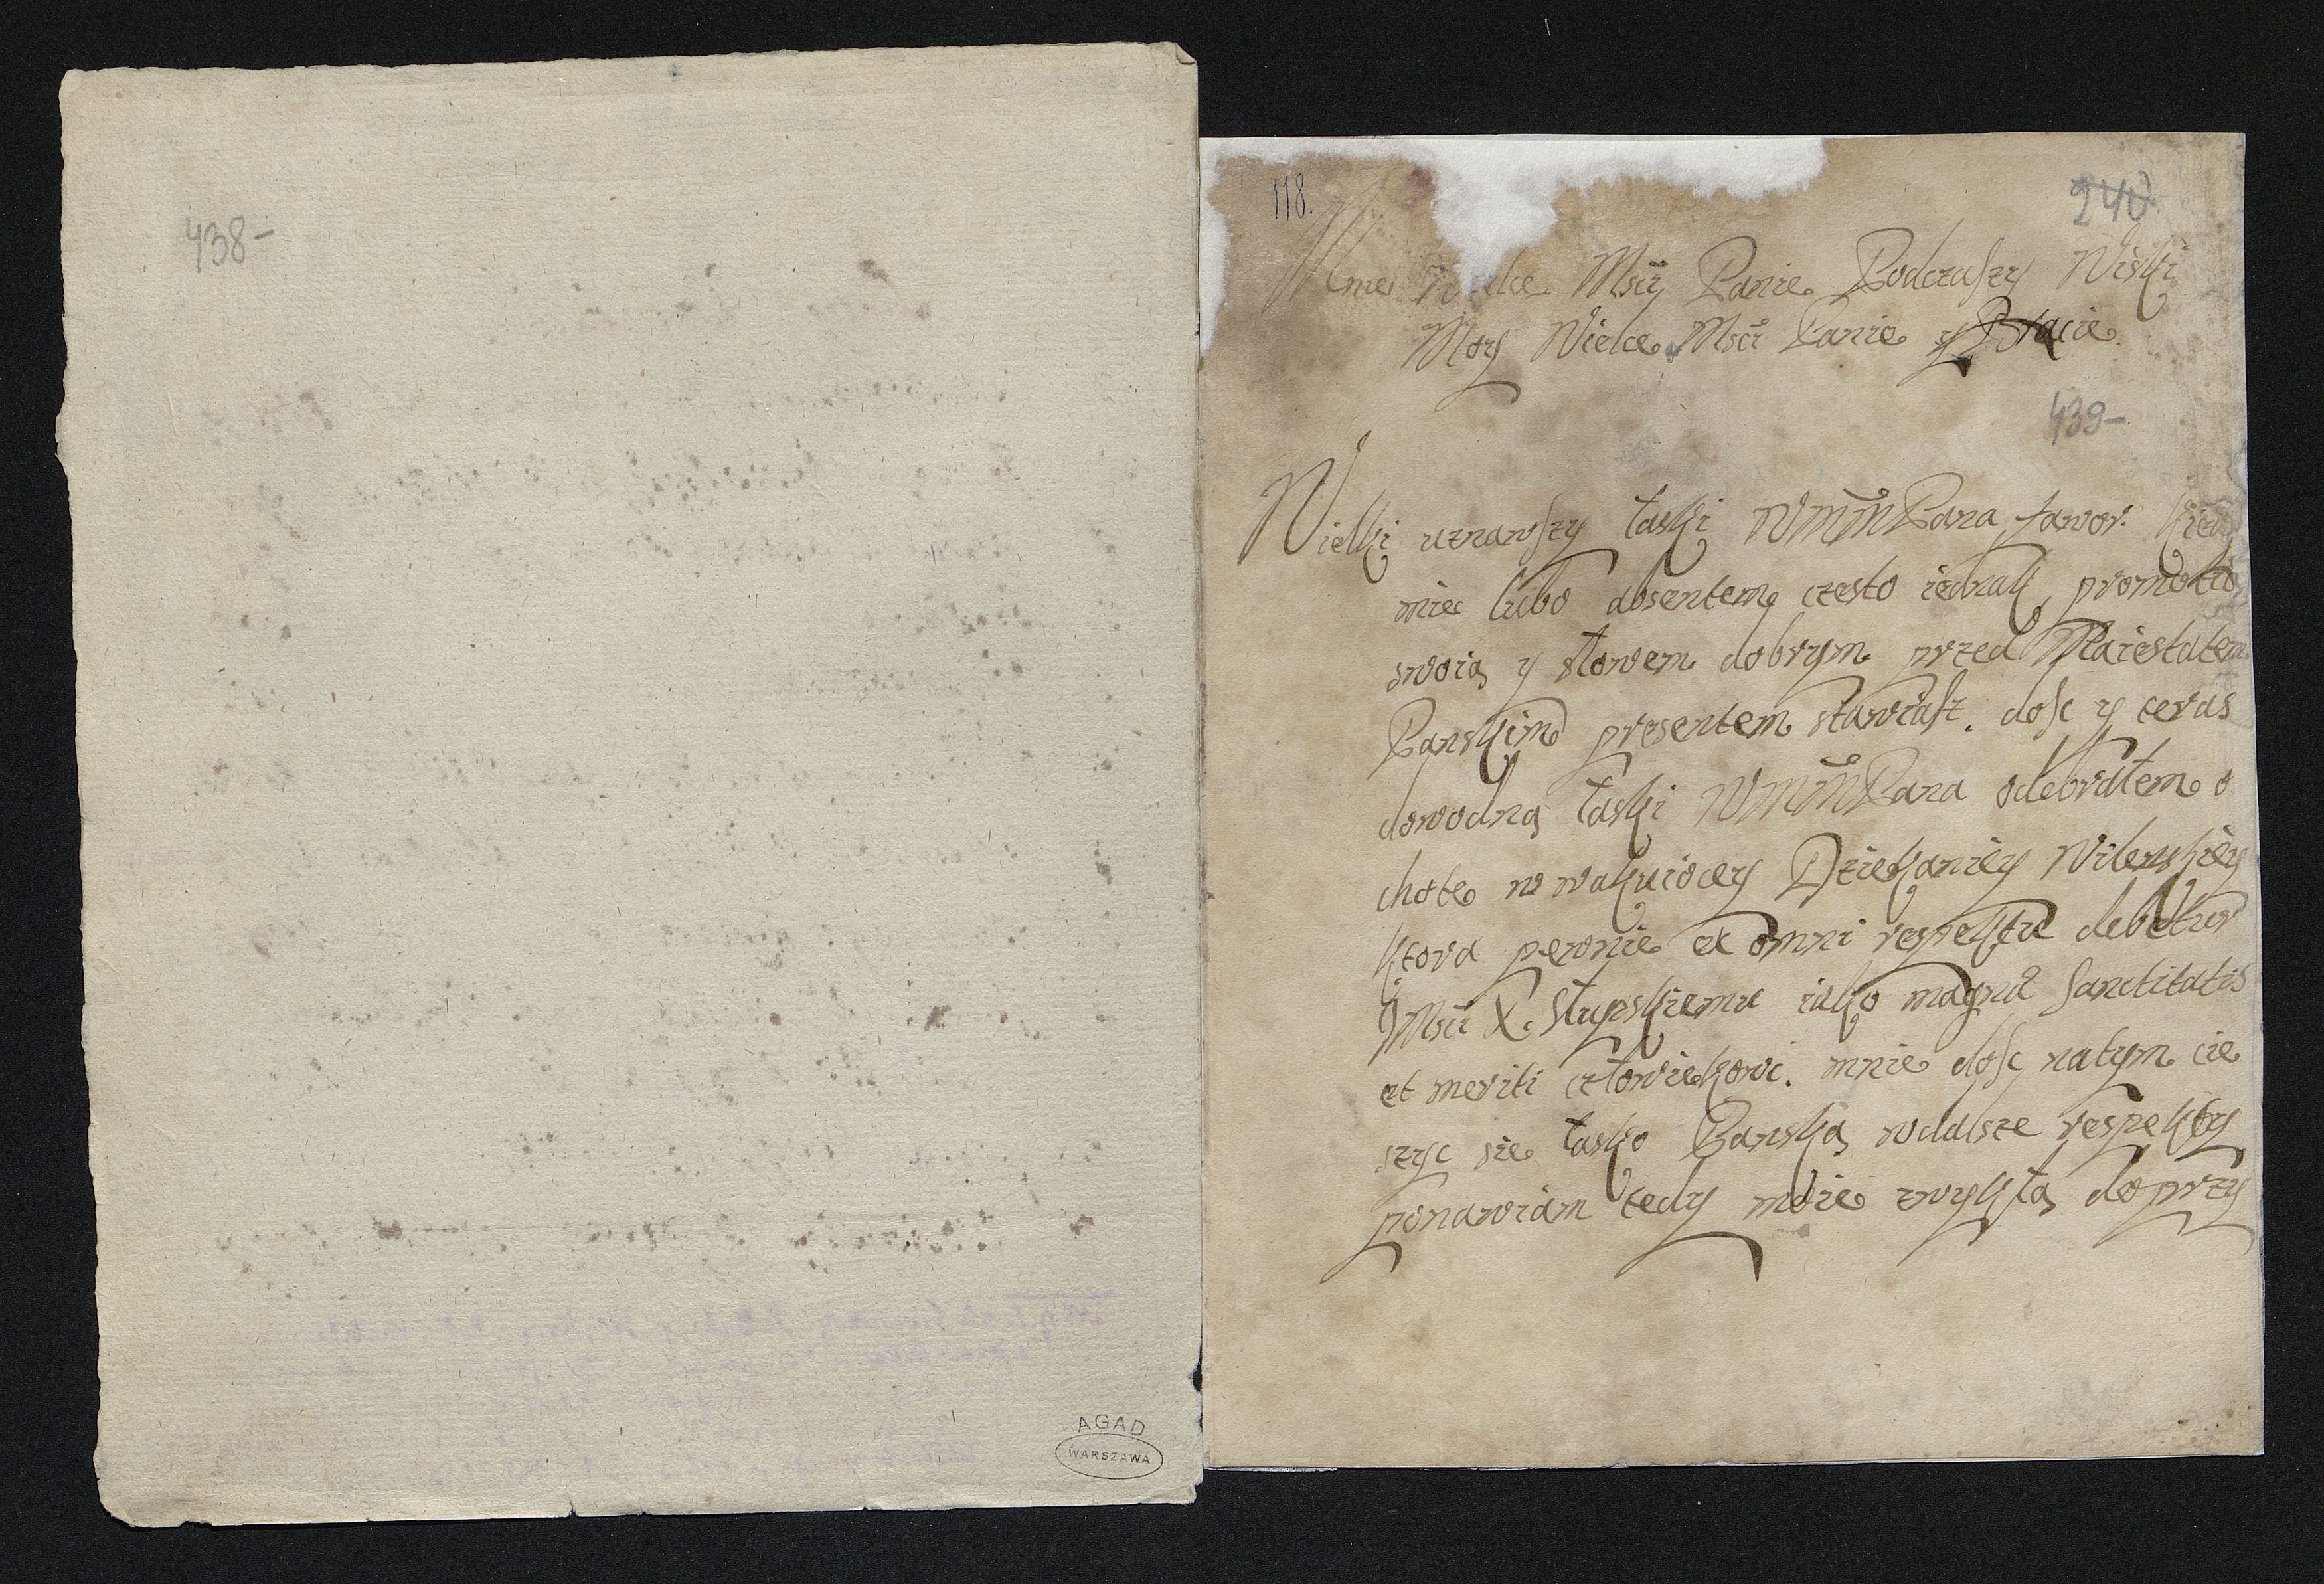 438-
AGAD
WARSZAWA
118.
240
Mnie Wielce Mści Panie Podczaszy Wiski
Moy Wielce Mści Panie y Bracie
439-
Wielki uznawszy łaski WMMPana fawor. kiedy
mie lubo absentem często iednak promotią
swoią y słowem dobrym przed Maiestatem
Panskim presentem stawiasz. dosc y teras
dowodną łaski WMMPana odebrałem o
chote w wakuiącey Dziekaniey Wilenskiey
ktora pewnie ex omni respektu debetur
JMści X. Słupskiemu iako magnæ Sanctitatis
et meriti człowiekowi. mnie dosc natym cie
szyc sie łasko Panską wdalsze respekty
ponawiam tedy moie zwykłą do przy